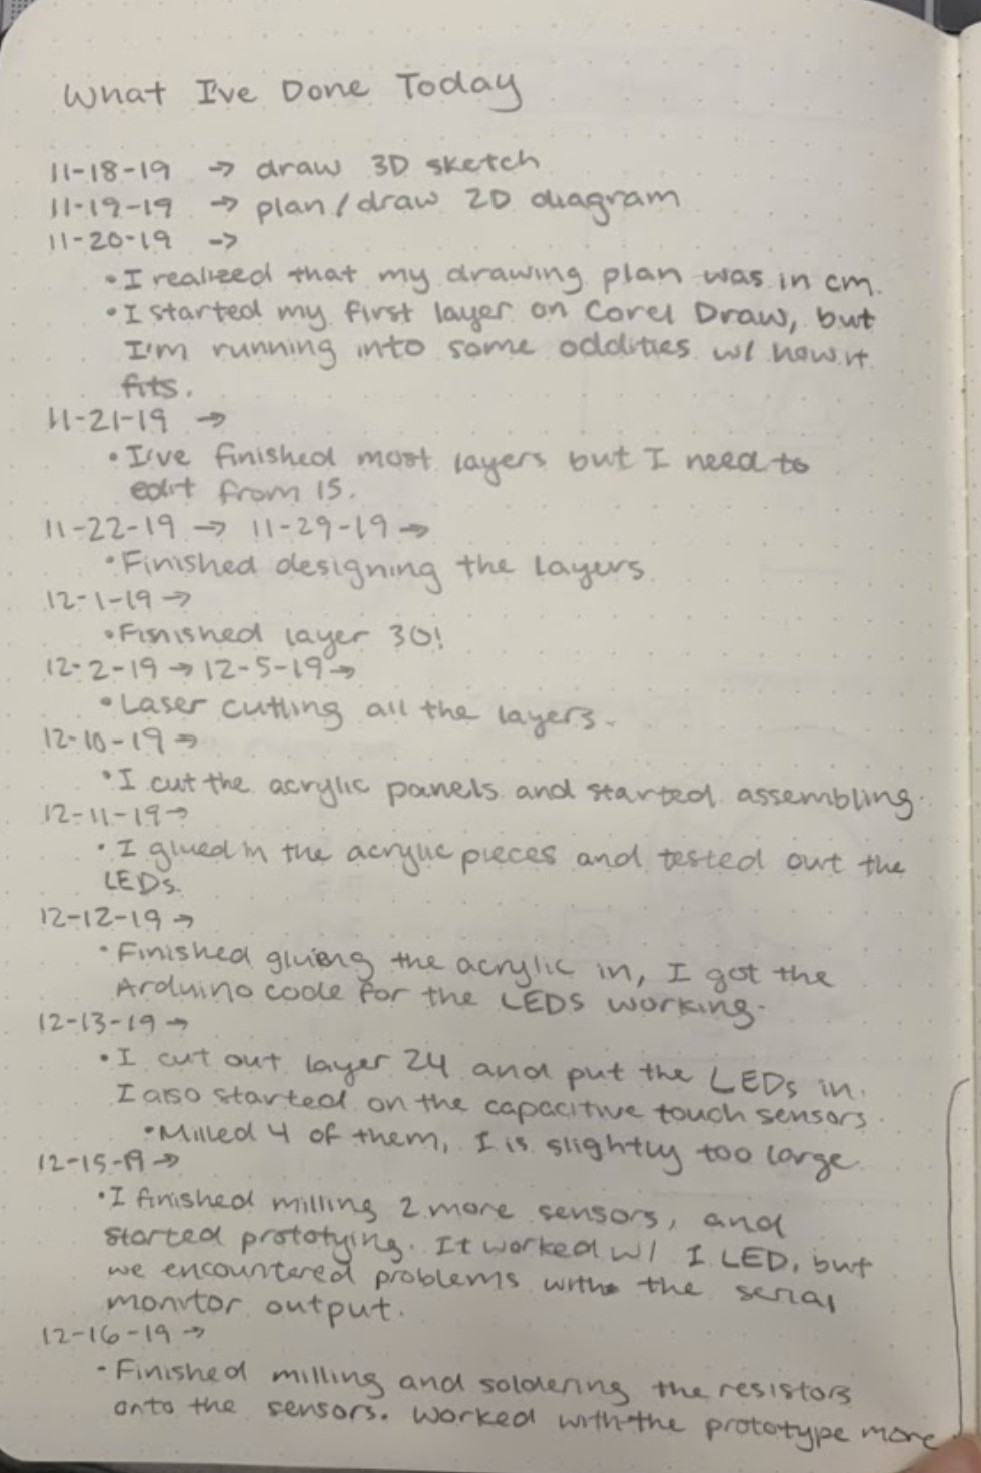 What I've Done Today
11-18-19 → draw 3D sketch
11-19-19 → plan/draw 2D diagram
11-20-19 →
• I realized that my drawing plan was in cm.
• I started my first layer on Corel Draw, but
I'm running into some oddities w/ how it
fits.
11-21-19 →
• I've finished most layers but I need to
edit from 15.
11-22-19 → 11-29-19 →
• Finished designing the layers
12-1-19 →
• Finished layer 30!
12-2-19 → 12-5-19 →
• Laser cutting all the layers.
12-10-19 →
• I cut the acrylic panels and started assembling.
12-11-19 →
• I glued in the acrylic pieces and tested out the
LEDs.
12-12-19 →
• Finished gluing the acrylic in, I got the
Arduino code for the LEDS working.
12-13-19 →
• I cut out layer 24 and put the LEDs in.
I also started on the capacitive touch sensors.
• Milled 4 of them, 1 is slightly too large.
12-15-19 →
• I finished milling 2 more sensors, and
started prototying. It worked w/ 1 LED, but
we encountered problems with the serial
monitor output.
12-16-19 →
- Finished milling and soldering the resistors
onto the sensors. Worked with the prototype more